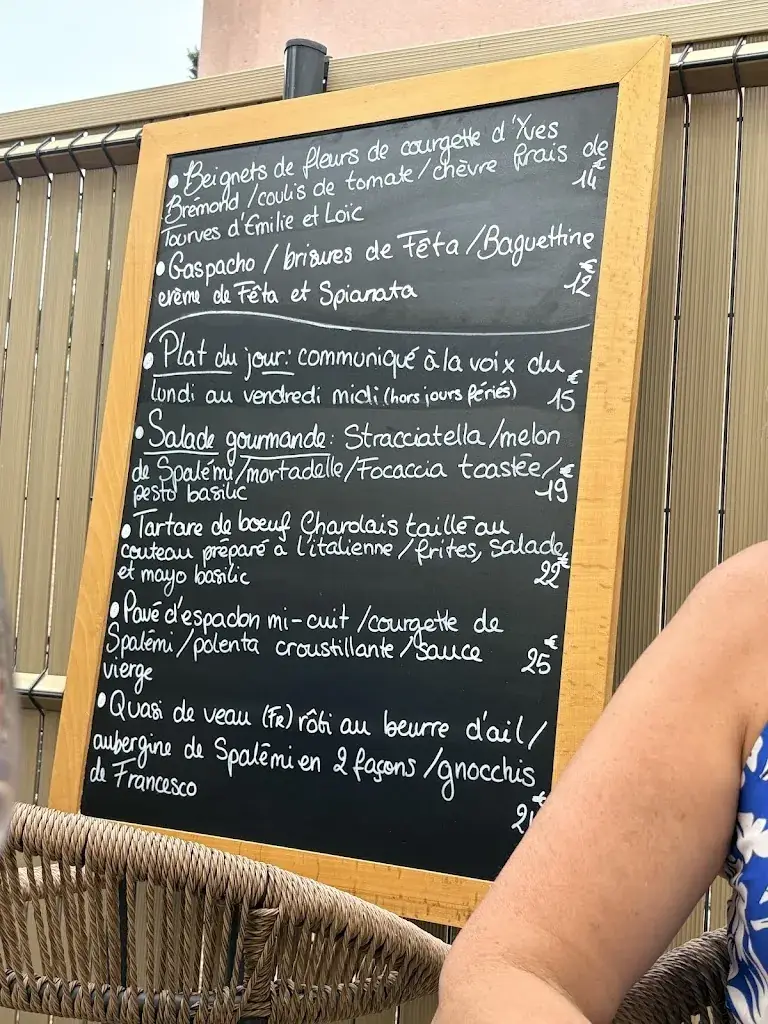 • Beignets de fleurs de courgette d'Yves
Brémond / coulis de tomate / chèvre frais de
Tourves d'Emilie et Loïc 14€
• Gaspacho / brisures de Fêta / Baguettine
crème de Fêta et Spianata 12€
• Plat du jour: communiqué à la voix du
lundi au vendredi midi (hors jours fériés) 15€
• Salade gourmande: Stracciatella / melon
de Spalémi / mortadelle / Focaccia toastée /
pesto basilic 19€
• Tartare de boeuf Charolais taillé au
couteau préparé à l'italienne / frites, salade,
et mayo basilic 22€
• Pavé d'espadon mi-cuit / courgette de
Spalémi / polenta croustillante / Sauce
vierge 25€
• Quasi de veau (FR) rôti au beurre d'ail /
aubergine de Spalémi en 2 façons / gnocchis
de Francesco